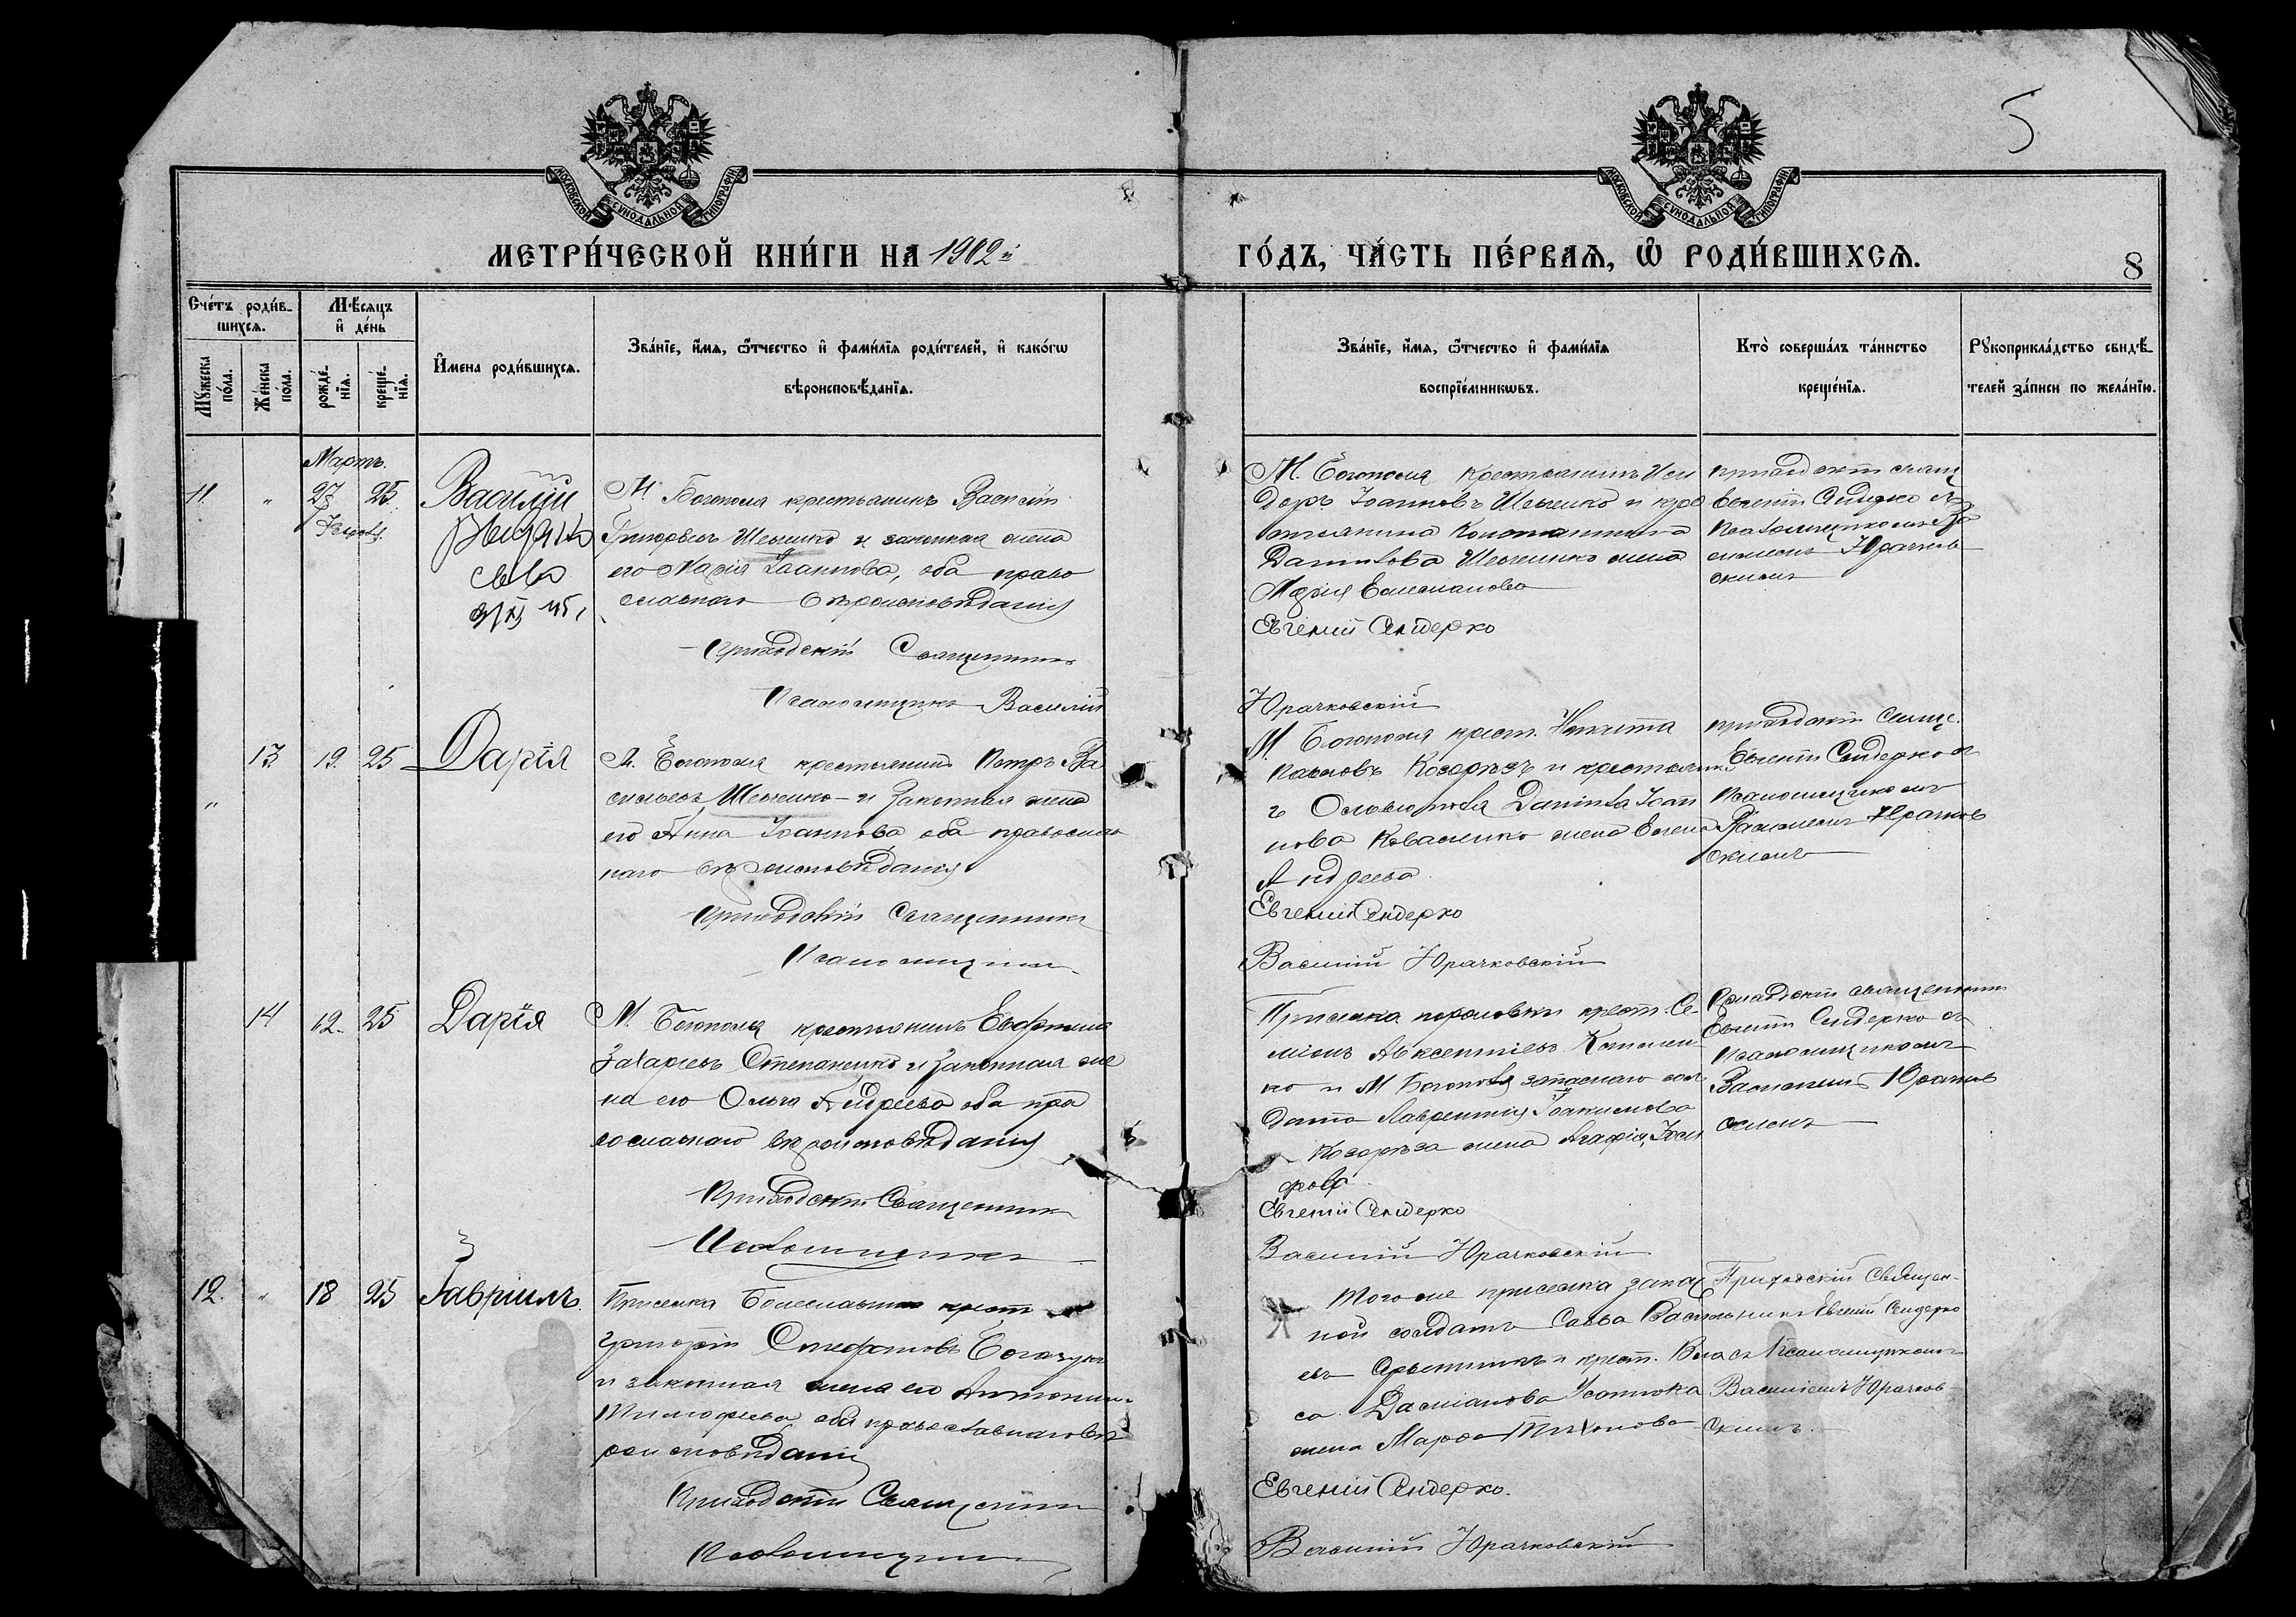 МОСКОВСКОЙ СѴНОДАЛЬНОЙ ТИПОГРАФІИ
МОСКОВСКОЙ СѴНОДАЛЬНОЙ ТИПОГРАФІИ
5
МЕТРИ́ЧЕСКОЙ КНИ́ГИ НА 1902й
ГО́ДЪ, ЧА́СТЬ ПЕ́РВАѦ, Ѡ҆ РОДИ́ВШИХСѦ.
8
Сче́тъ роди́в-
шихсѧ.
Мꙋ́жеска
по́ла.
Же́нска
по́ла.
Мѣ́сѧцъ
и҆ де́нь
рожде́-
нїѧ.
креще́-
нїѧ.
И҆мена роди́вшихсѧ.
Зва́нїе, и҆́мѧ, ѻ҆́тчество и҆ фами́лїѧ роди́телей, и҆ како́гѡ
вѣроисповѣ́данїѧ.
Зва́нїе, и҆́мѧ, ѻ҆́тчество и҆ фами́лїѧ
воспрїе́мникѡвъ.
Кто̀ соверша́лъ та́инство
креще́нїѧ.
Рꙋкоприкла́дство свидѣ́-
телей за́писи по жела́нїю.
Мартъ.
11. " 27 25
Василій
М. Богополя крестьянинъ Василій
Григорьевъ Шевченко и законная жена
его Марія Іоаннова, оба право
славнаго вѣроисповѣданія
Приходскій Священникъ
Псаломщикъ Василій
М. Богополя крестьянинъ Иси
доръ Іоанновъ Шевченко и кре
стьянина Константина
Данилова Шевченко жена
Марія
Евгеній Сендерко
Юрачковскій
приходскій свящ
Евгеній Сендерко съ
Псаломщикомъ Ва
силіемъ Юрачков
скимъ
" 13. 19. 25
Дарія
М. Богополя крестьянинъ Петръ Ва
сильевъ Шевченко и законная жена
его Анна Іоаннова оба православ
наго вѣроисповѣданія
Приходскій Священникъ
Псаломщикъ
М. Богополя крест. Никита
Павловъ Козорѣзъ и крестьянин
Даніила Іоан
нова Коваленко жена Елена
Андреева.
Евгеній Сендерко
Василій Юрачковскій
приходскій Свящ.
Евгеній Сендерко съ
Псаломщикомъ
Василіемъ Юрачков
скимъ
14 12. 25
Дарія
М. Богополя крестьянинъ Евфимій
Захаріевъ Степаненко и законная же
на его Ольга Андреева оба пра
вославнаго вѣроисповѣданія
Приходскій Священникъ
Псаломщикъ
крест. Си-
міонъ Авксентіевъ
ко и М. Богополя запаснаго сол
дата Лаврентія Іоакимова
Козорѣза жена Агафія
Евгеній Сендерко
Василій Юрачковскій
Приходскій священникъ
Евгеній Сендерко съ
Псаломщикомъ
Василіемъ Юрачков
скимъ
12. " 18 25
Гавріилъ.
Приселка крест
Григорій Стефановъ
и законная жена его Антонина
Тимофеева оба православнаго вѣ
роисповѣданія
Приходскій Священникъ
Псаломщикъ
Того же приселка запас
ной солдатъ Савва Василь
евъ и крест. Вла
са Даміанова
жена Марфа Тихонова
Евгеній Сендерко.
Василій Юрачковскій
Приходскій Священ-
никъ Евгеній Сендерко
съ Псаломщикомъ
Василіемъ Юрачков-
скимъ.